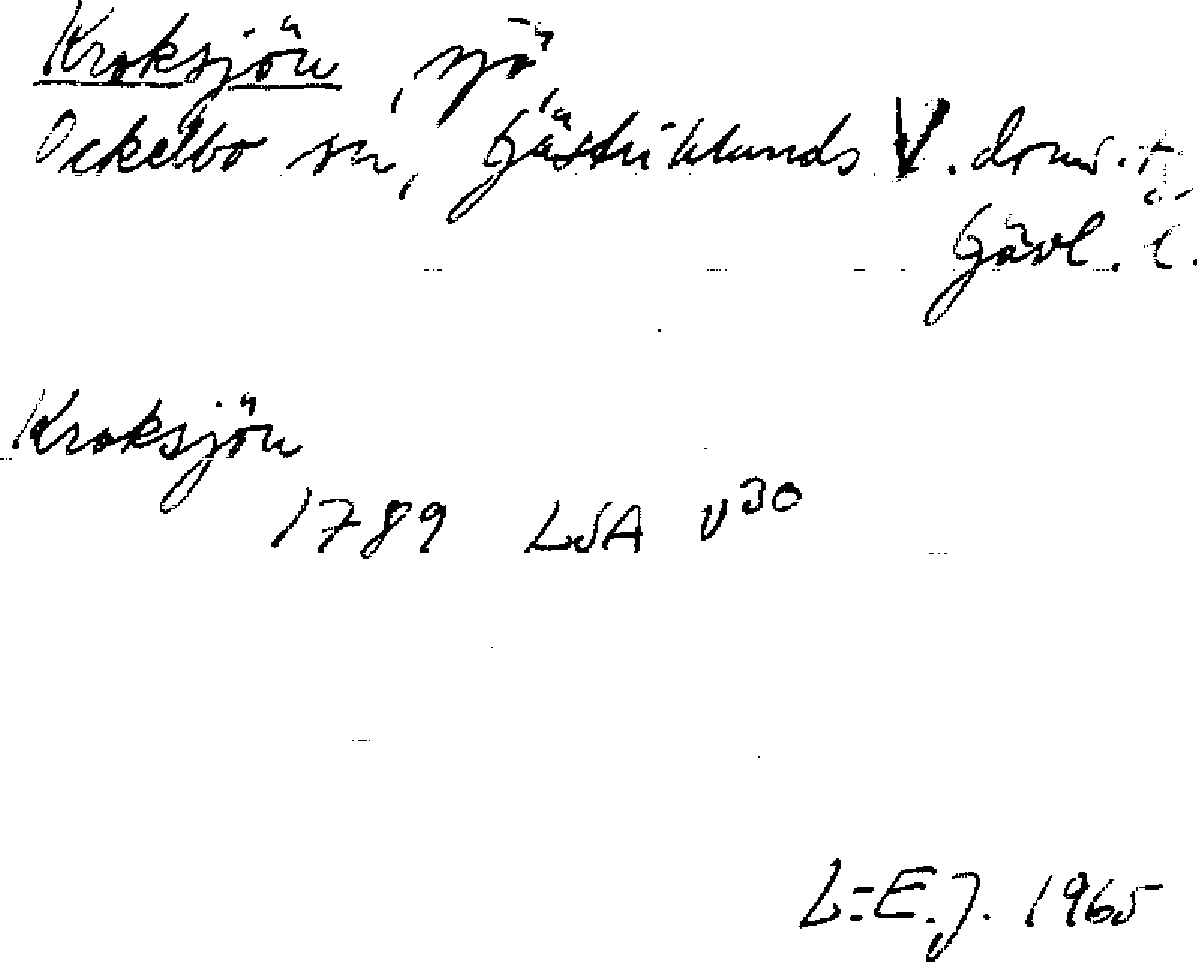 Kroksjön, sjö,
Ockelbo sn, Gästriklands V. doms.
Gävl. l.
Kroksjön
1789 LSA V³⁰
L-E.J. 1965